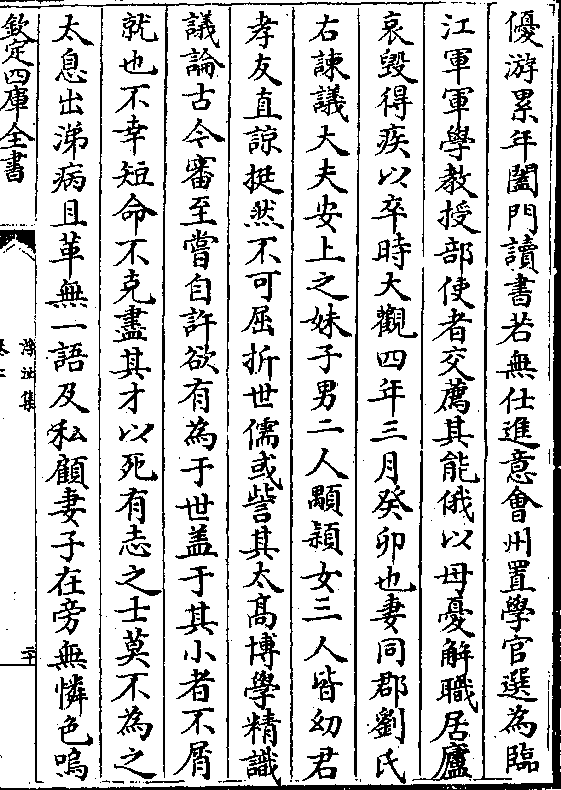 優游累年闔門讀書若無仕進意會州置學官選為臨
江軍軍學教授部使者交薦其能俄以母憂解職居廬
哀毀得疾以卒時大觀四年三月癸卯也妻同郡劉氏
右諫議大夫安上之妹子男二人顒頴女三人皆幼君
孝友直諒挺然不可屈折世儒或訾其太髙博學精識
議論古今審至嘗自許欲有為于世盖于其小者不屑
就也不幸短命不克盡其才以死有志之士莫不為之
太息出涕病且革無一語及私顧妻子在旁無憐色嗚
欽定四庫全書
集
二十